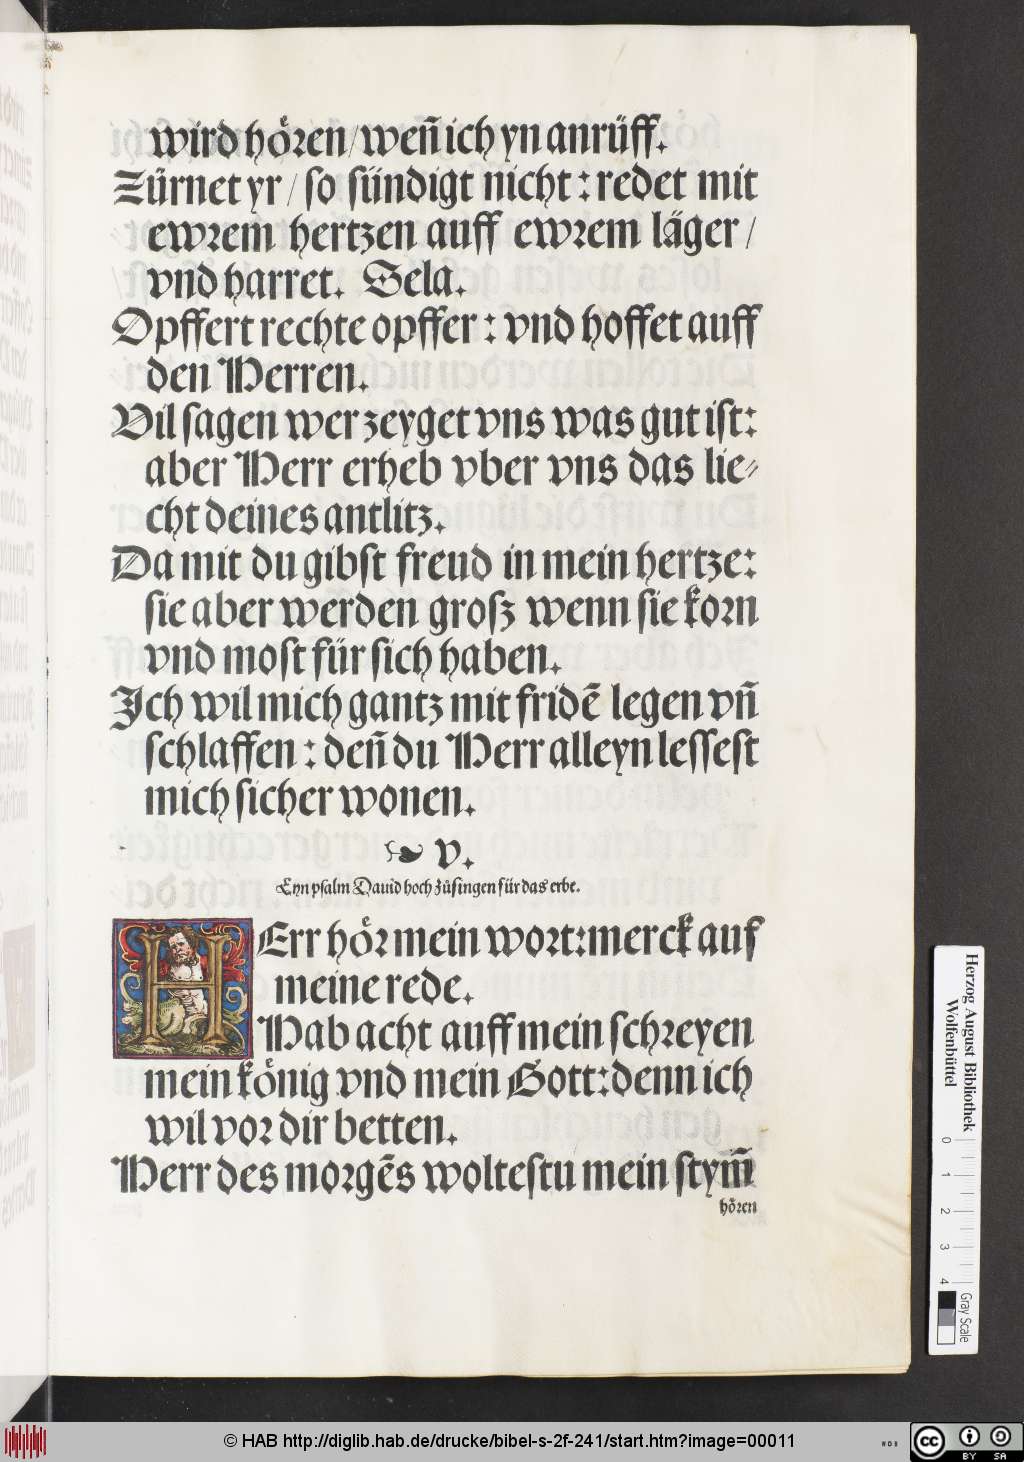 wird hoͤren/weñ ich yn anrüff.
Zürnet yr / so sündigt nicht : redet mit
ewrem hertzen auff ewrem läger /
vnd harret. Sela.
Opffert rechte opffer : vnd hoffet auff
den Herren.
Vil sagen wer zeyget vns was gut ist:
aber Herr erheb vber vns das lie⸗
cht deines antlitz.
Da mit du gibst freud in mein hertze:
sie aber werden groß wenn sie korn
vnd most für sich haben.
Ich wil mich gantz mit fridẽ legen vñ
schlaffen : deñ du Herr alleyn lessest
mich sicher wonen.
❧ v.
Eyn psalm Dauid hoch zůsingen für das erbe.
HErr hoͤr mein wort:merck auf
meine rede.
Hab acht auff mein schreyen
mein koͤnig vnd mein Gott:denn ich
wil vor dir betten.
Herr des morgẽs woltestu mein stym̃
hoͤren
Herzog August Bibliothek
Wolfenbüttel
0 1 2 3 4
Gray Scale
© HAB http://diglib.hab.de/drucke/bibel-s-2f-241/start.htm?image=00011
WDB
cc BY SA